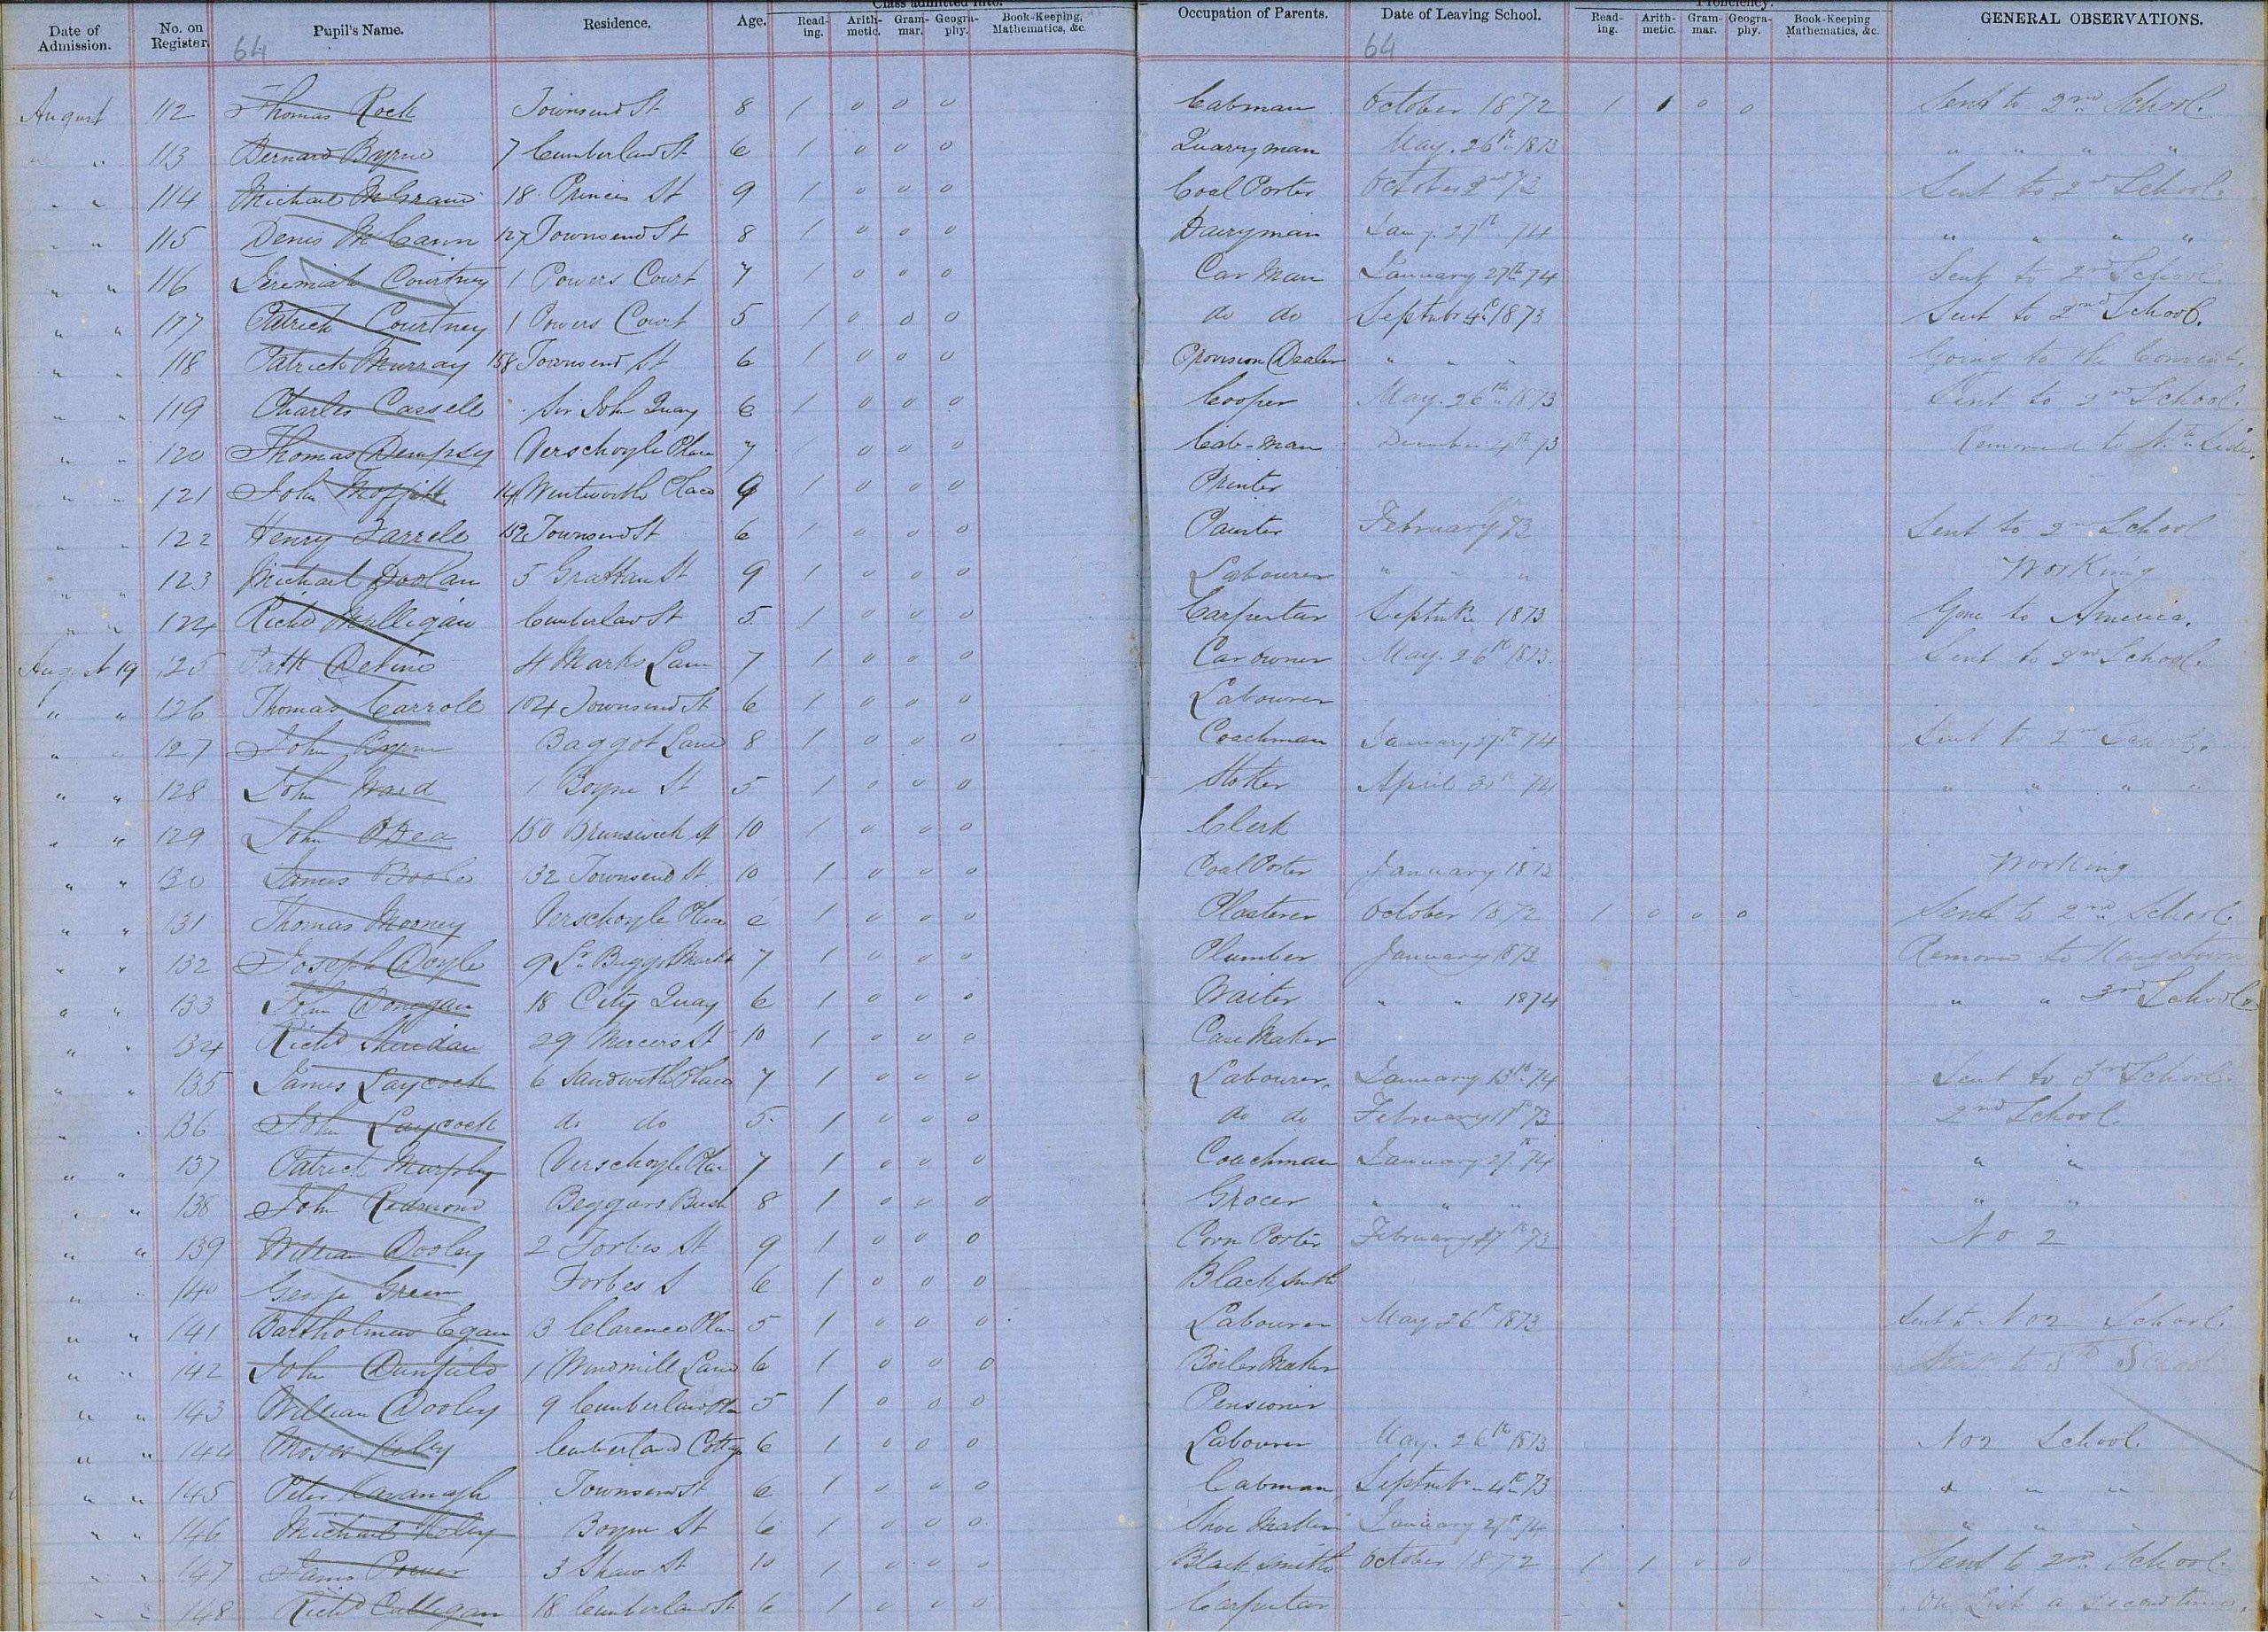 Class admitted into. Proficiency.
Date of Admission. No. on Register. Pupil's Name. Residence. Age. Read-ing. Arith-metic. Gram-mar. Geogra-phy. Book-Keeping, Mathematics, &c. Occupation of Parents. Date of Leaving School. Read-ing. Arith-metic. Gram-mar. Geogra-phy. Book-Keeping Mathematics, &c. GENERAL OBSERVATIONS.
64 64
August 112 Thomas Rock Townsend St 8 1 0 0 0 Cabman October 1872 1 1 0 0 Sent to 2nd School.
" " 113 Bernard Byrne 7 Cumberland St 6 1 0 0 0 Quarryman May. 26th 1873 " " " "
" " 114 Michael McGrane 18 Princes St 9 1 0 0 0 Coal Porter October 2nd 72 Sent to 2nd School.
" " 115 Denis McCann 127 Townsend St 8 1 0 0 0 Dairyman Jany. 27th 74 " " " "
" " 116 Jeremiah Courtney 1 Powers Court 7 1 0 0 0 Car Man January 27th 74 Sent to 2nd School.
" " 117 Patrick Courtney 1 Powers Court 5 1 0 0 0 do do Septmbr 4th 1873 Sent to 2nd School.
" " 118 Patrick Murray 158 Townsend St 6 1 0 0 0 Provision Dealer " " " Going to the Convent.
" " 119 Charles Cassell Sir John Quay 6 1 0 0 0 Cooper May. 26th 1873 Sent to 2nd School.
" " 120 Thomas Dempsy Verschoyle Place 7 0 0 0 Cab-man December 4th 73 Removed to Nth Side.
" " 121 John Moffitt 14 Wentworth Place 9 1 0 0 0 Printer
" " 122 Henry Farrell 152 Townsend St 6 1 0 0 0 Painter February 73 Sent to 2nd School
" " 123 Michael Doolan 5 Grattan St 9 1 0 0 0 Labourer " " " Working
" " 124 Richd Mulligan Cumberland St 5 1 0 0 0 Carpenter Septmbr 1873 Gone to America.
August 19 125 Patk Devine 4 Marks Lane 7 1 0 0 0 Car owner May. 26th 1873. Sent to 2nd School.
" " 126 Thomas Carroll 104 Townsend St 6 1 0 0 0 Labourer
" " 127 John Byrne Baggot Lane 8 1 0 0 0 Coachman January 27th 74 Sent to 2nd School.
" " 128 John Ward 1 Boyne St 5 1 0 0 0 Stoker April 30th 74 " " " "
" " 129 John O'Dea 150 Brunswick St 10 1 0 0 0 Clerk
" " 130 James Boole 32 Townsend St 10 1 0 0 0 Coal Porter January 1873 Working
" " 131 Thomas Mooney Verschoyle Place 6 1 0 0 0 Plasterer October 1872 1 0 0 0 Sent to 2nd School.
" " 132 Joseph Doyle 9 Lr Baggot 7 1 0 0 0 Plumber January 1873 Removed to Kingstown
" " 133 John Donegan 18 City Quay 6 1 0 0 0 Waiter " " 1874 " " 3rd School.
" " 134 Richd Sheridan 29 Mercers St 10 1 0 0 0 Case Maker
" " 135 James Laycock 6 Sandwith Place 7 1 0 0 0 Labourer. January 13th 74 Sent to 3rd School.
" " 136 John Laycock do do 5 1 0 0 0 do do February 17th 73 2nd School
" " 137 Patrick Murphy Verschoyle Place 7 1 0 0 0 Coachman January 27th 74 " "
" " 138 John Redmond Beggars Bush 8 1 0 0 0 Grocer " " " " "
" " 139 William Dooley 2 Forbes St 9 1 0 0 0 Corn Porter February 17th 73 No 2
" " 140 George Green Forbes S 6 1 0 0 0 Blacksmith
" " 141 Bartholmew Egan 3 Clarence Place 5 1 0 0 0 Labourer May 26th 1873 Sent to No 2 School.
" " 142 John 1 Windmill Lane 6 1 0 0 0 Boiler Maker School
" " 143 William Dooley 9 Cumberland 5 1 0 0 0 Pensioner
" " 144 Moses Kelly Cumberland Cottage 6 1 0 0 0 Labourer May. 26th 1873 No 2 School.
" " 145 Peter Kavanagh Townsend St 6 1 0 0 0 Cabman Septmbr 4th 73 " " "
" " 146 Michael Kelly Boyne St 6 1 0 0 0 Shoe Maker January 27th 74 " " "
" " 147 James Power 3 Shaw St 10 1 0 0 0 Black Smith October 1872 1 1 0 0 Sent to 2nd School
" " 148 Richd 18 Cumberland St 6 1 0 0 0 Carpenter On List a second time.